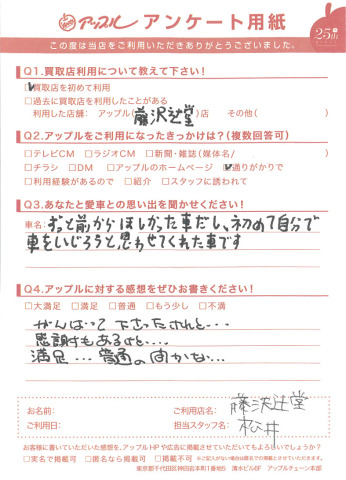 アップル アンケート用紙
25th
この度は当店をご利用いただきありがとうございました。
Q1.買取店利用について教えて下さい!
☑買取店を初めて利用
□過去に買取店を利用したことがある
利用した店舗: アップル(藤沢辻堂)店 その他( )
Q2.アップルをご利用になったきっかけは?(複数回答可)
□テレビCM □ラジオCM □新聞・雑誌(媒体名/ )
□チラシ □DM □アップルのホームページ ☑通りがかりで
□利用経験があるので □紹介 □スタッフに誘われて
Q3.あなたと愛車との思い出を聞かせください!
車名: ずっと前からほしかった車だし、初めて自分で
車をいじろうと思わせてくれた車です
Q4.アップルに対する感想をぜひお書きください!
□大満足 □満足 □普通 □もう少し □不満
がんばって下さったけれど・・・
感謝もあるけど・・・
満足・・・普通の間かな・・・
お名前: ご利用店名: 藤沢辻堂
ご利用日: 担当スタッフ名: 松井
お客様に書いていただいた感想を、アップルHPや広告に掲載させていただいてもよろしいでしょうか?
□実名で掲載可 □匿名なら掲載可 □掲載不可 ※ご記入がない場合は匿名での掲載とさせていただきます。
東京都千代田区神田岩本町1番地5 清水ビル6F アップルチェーン本部